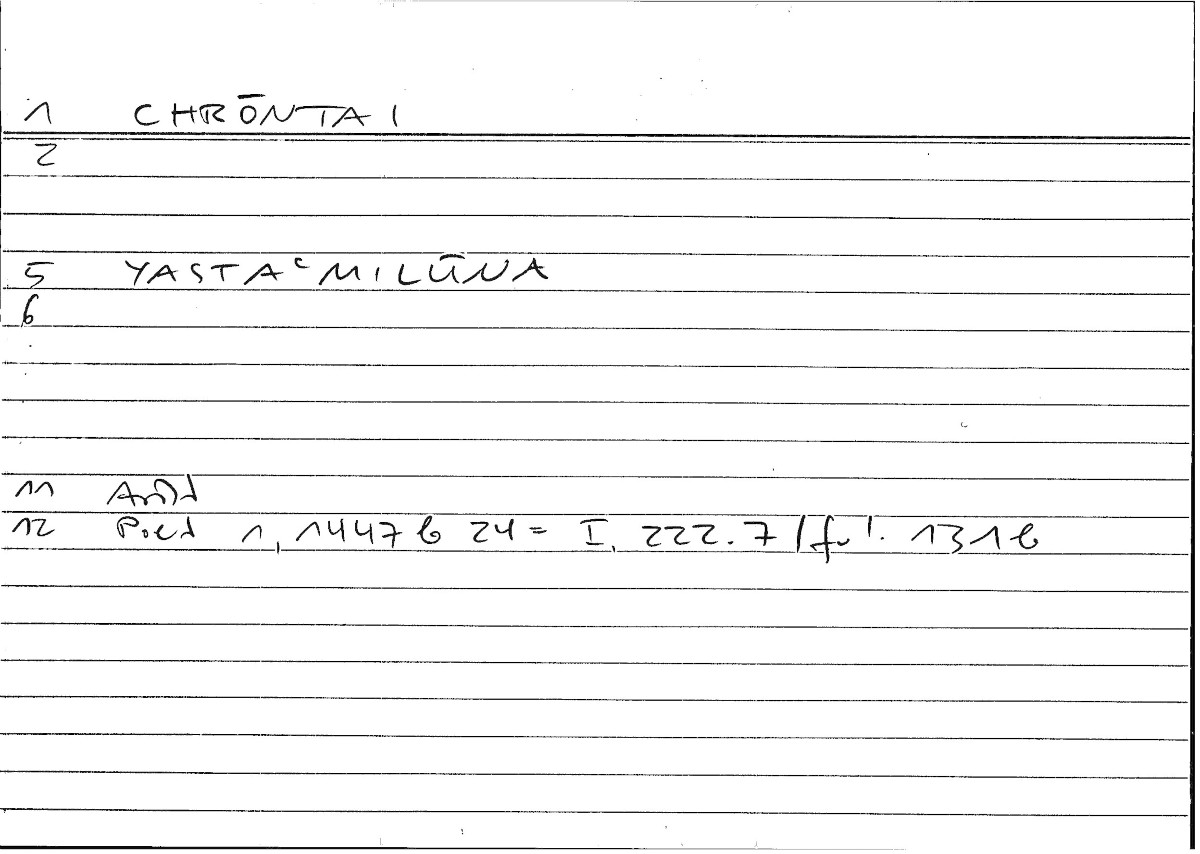 1 CHRŌNTAI
2
5 YASTAʿMILŪNA
6
11 Arist
12 Poet 1, 1447 b 24 = I, 222.7 / fol. 131 b